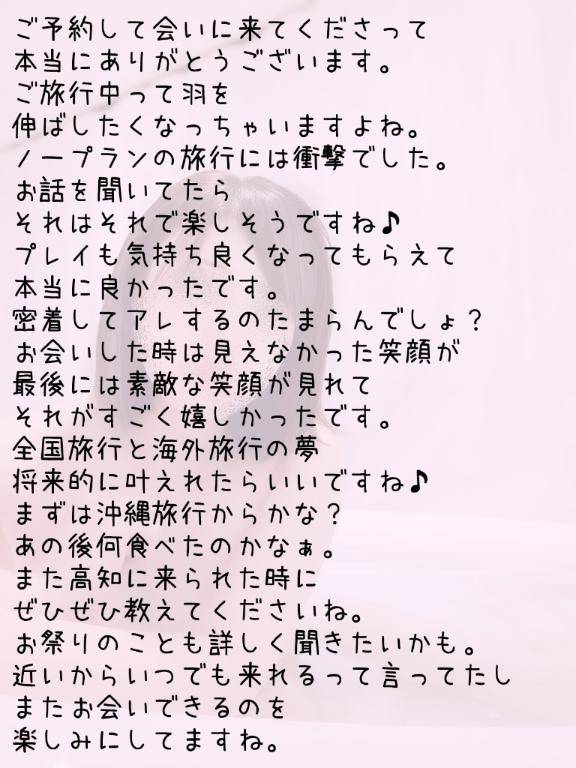 ご予約して会いに来てくださって
本当にありがとうございます。
ご旅行中って羽を
伸ばしたくなっちゃいますよね。
ノープランの旅行には衝撃でした。
お話を聞いてたら
それはそれで楽しそうですね♪
プレイも気持ち良くなってもらえて
本当に良かったです。
密着してアレするのたまらんでしょ？
お会いした時は見えなかった笑顔が
最後には素敵な笑顔が見れて
それがすごく嬉しかったです。
全国旅行と海外旅行の夢
将来的に叶えれたらいいですね♪
まずは沖縄旅行からかな？
あの後何食べたのかなぁ。
また高知に来られた時に
ぜひぜひ教えてくださいね。
お祭りのことも詳しく聞きたいかも。
近いからいつでも来れるって言ってたし
またお会いできるのを
楽しみにしてますね。